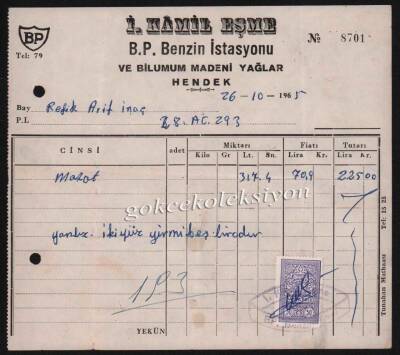 İ. KÂMİL EŞME
BP
B.P. Benzin İstasyonu
№ 8701
Tel: 79
VE BİLUMUM MADENİ YAĞLAR
HENDEK
26-10-1965
Bay Refik Arif inaç
P.L. 28. AC. 293
CİNSİ adet Miktarı Fiatı Tutarı
Kilo Gr Lt. Sn. Lira Kr. Lira Kr.
Mazot 317.4 70,9 225 00
gokcekoleksiyon
yanlız. ikiyüz yirmibeş liradır
YEKÛN
Tunahan Matbaası Tel: 15 25